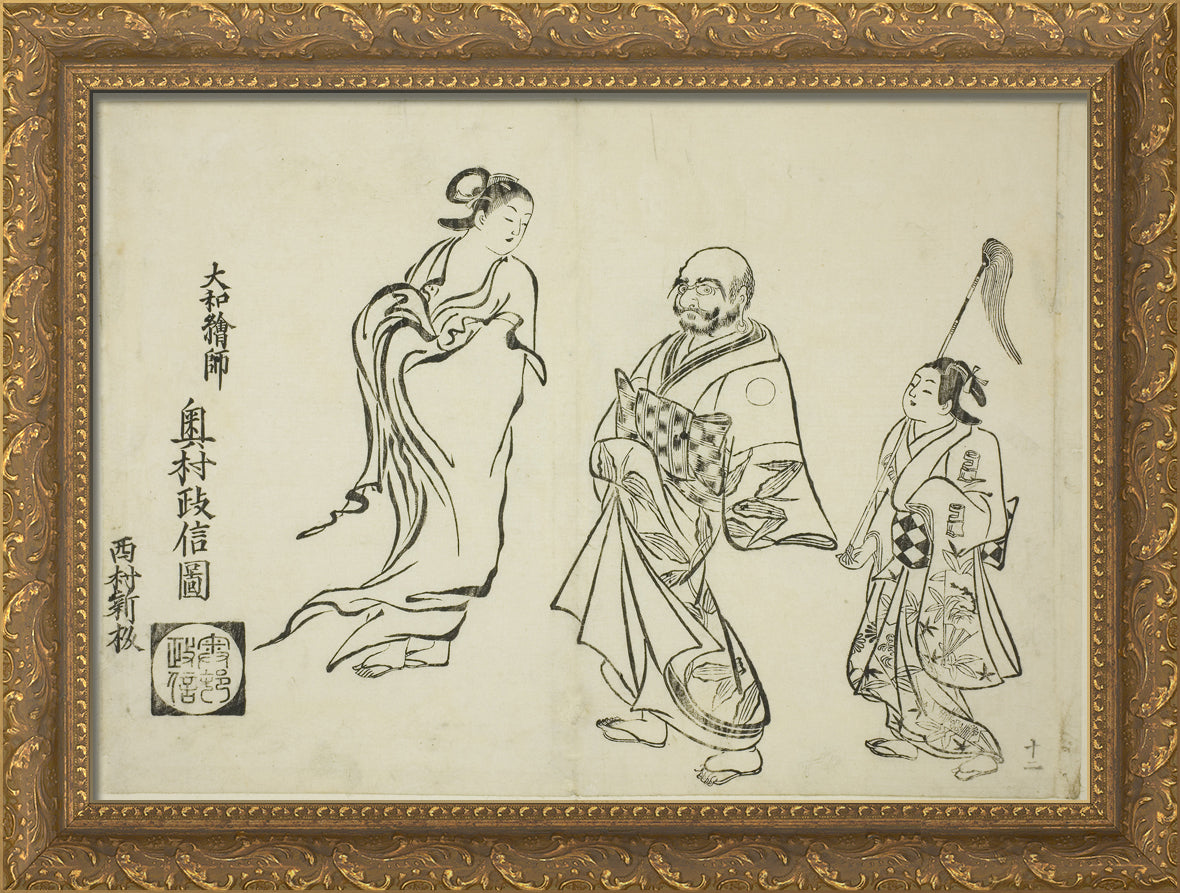 十二
大和繪師
奥村政信圖
奥邨
政信
西村新板